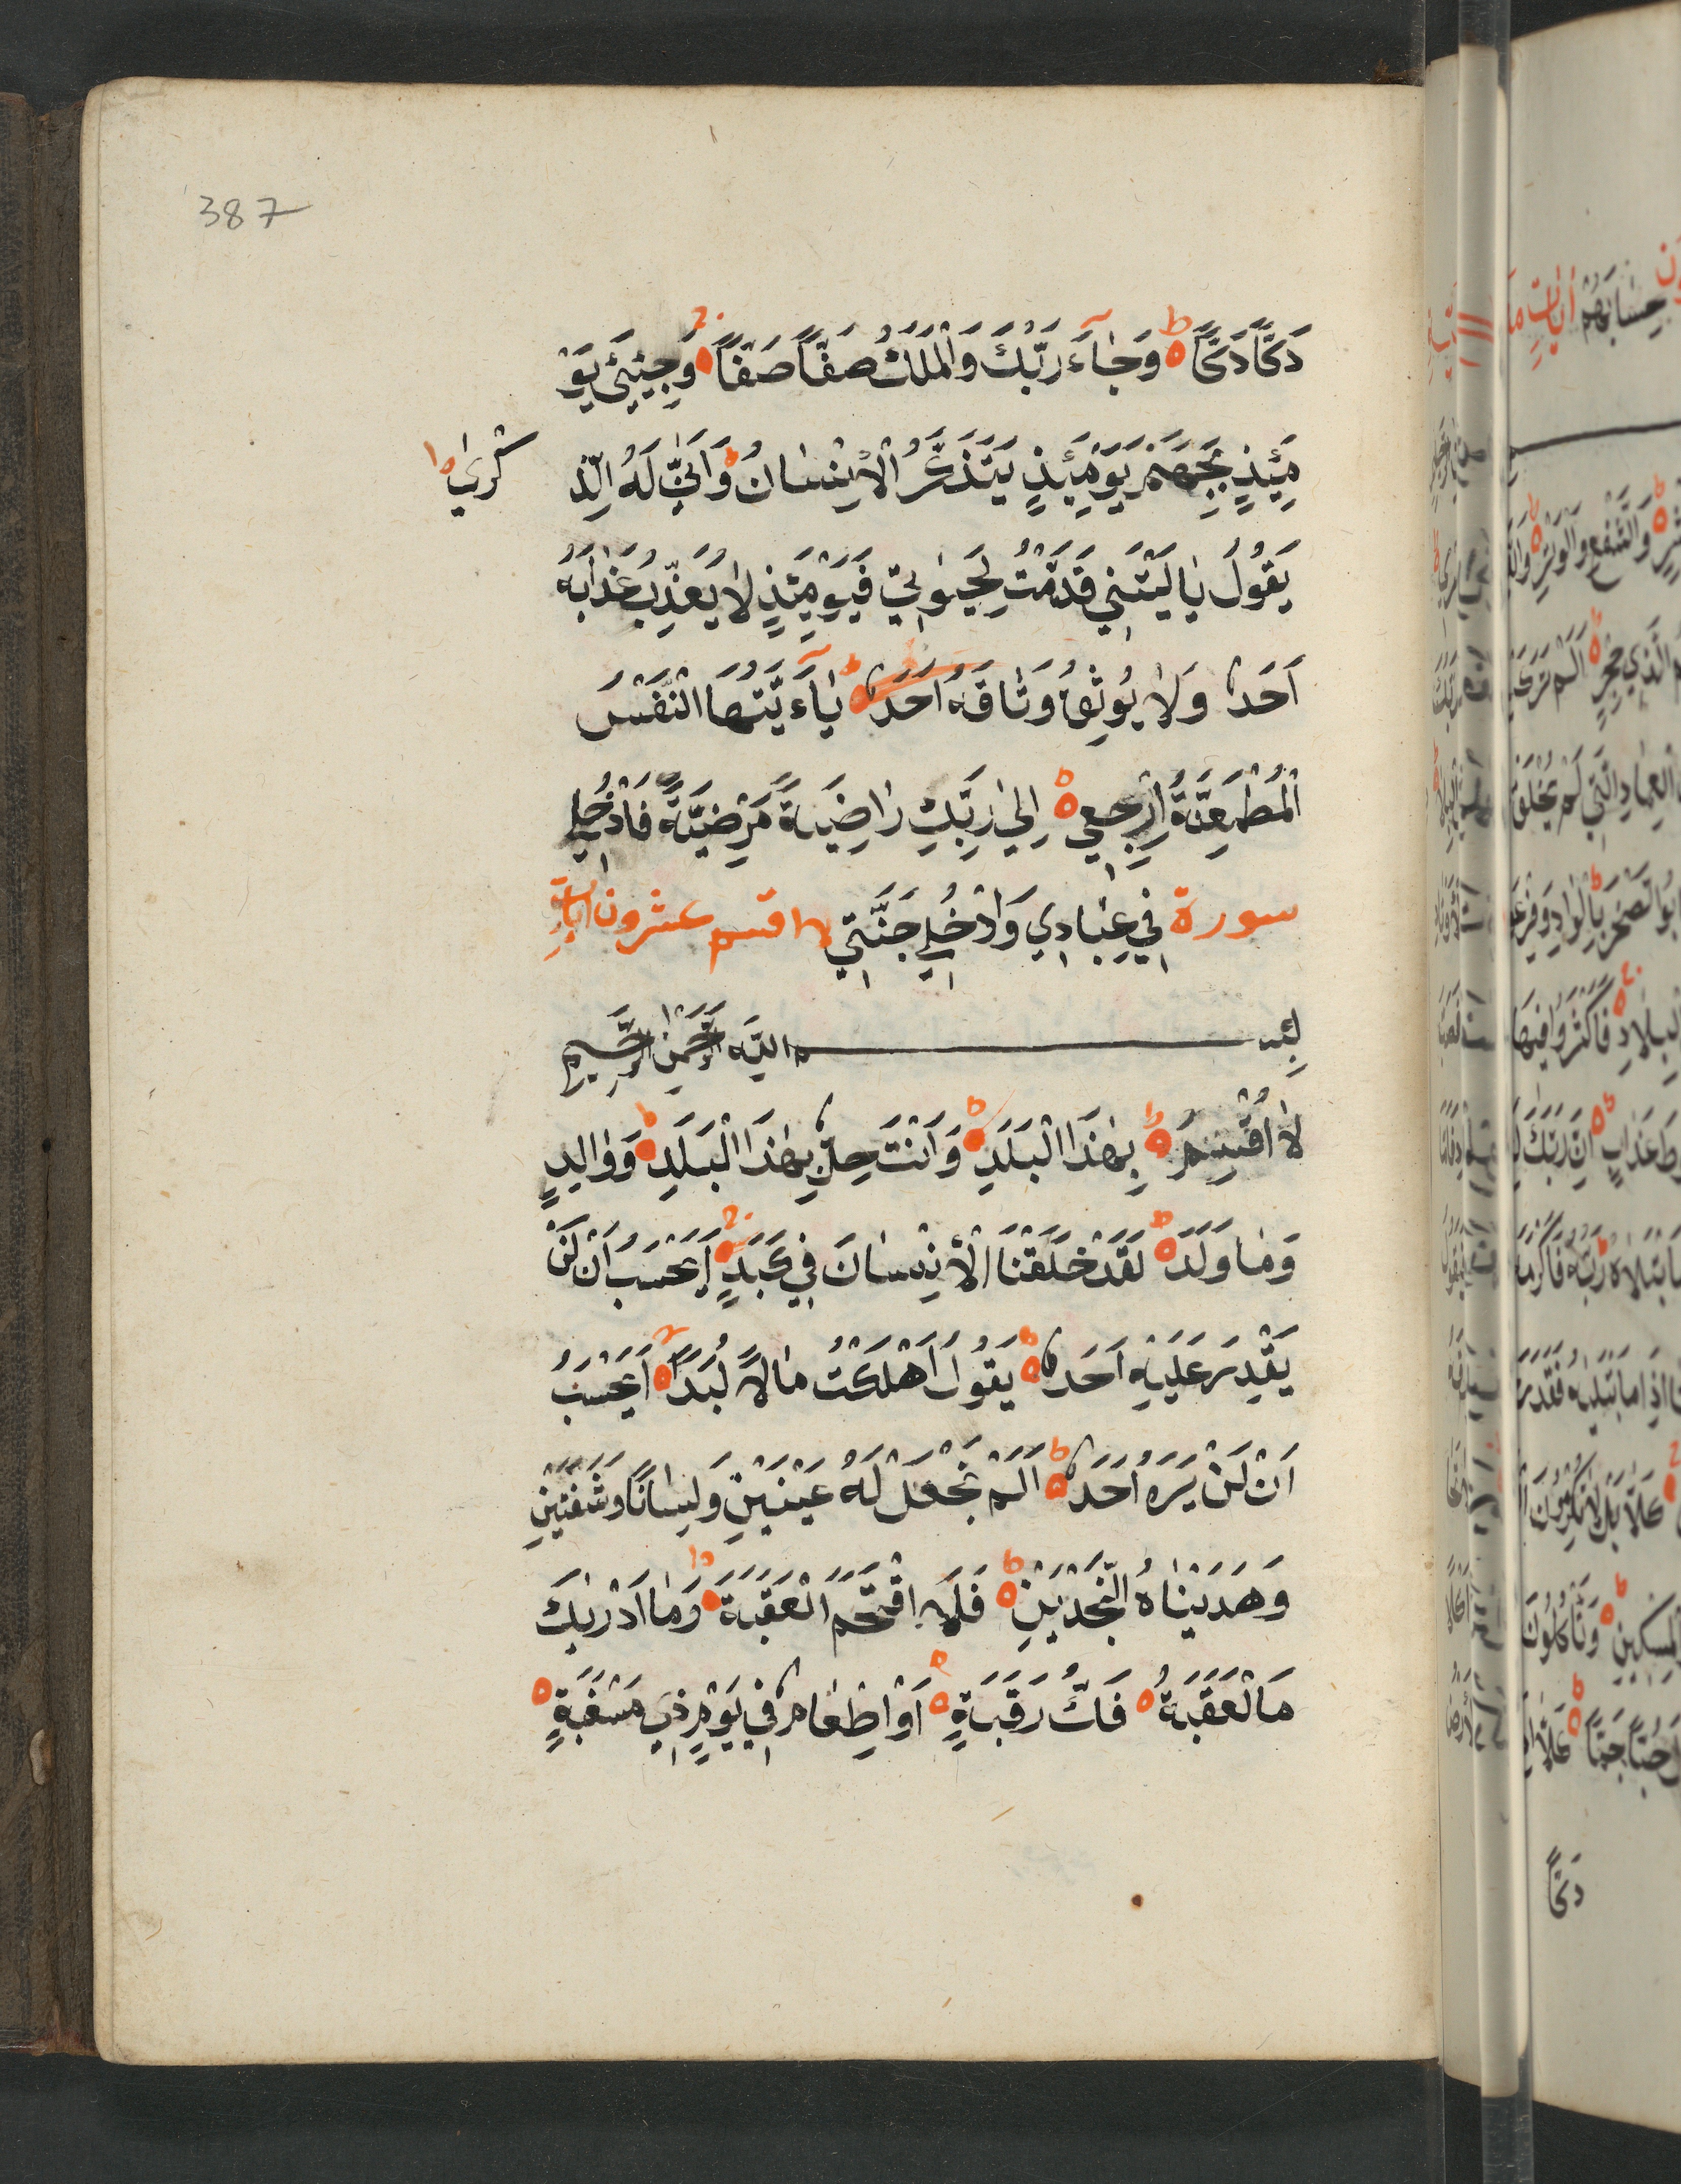 387
دَكًّا دَكًّا وَجَآءَ رَبُّكَ وَالْمَلَكُ صَفًّا صَفًّا وَجِيئَ يَوْ
مَئِذٍ بِجَهَنَّمَ يَوْمَئِذٍ يَتَذَكَّرُ الْاِنْسَانُ وَاَنّٰى لَهُ الذِّ
كْرٰى
يَقُولُ يَالَيْتَنِي قَدَّمْتُ لِحَيٰوتِي فَيَوْمَئِذٍ لَا يُعَذِّبُ عَذَابَهُ
اَحَدٌ وَلَا يُوثِقُ وَثَاقَهُ اَحَدٌ يَآءَيَّتُهَا النَّفْسُ
الْمُطْمَئِنَّةُ ارْجِعِي اِلٰى رَبِّكِ رَاضِيَةً مَرْضِيَّةً فَادْخُلِي
سورة فِي عِبَادِي وَادْخُلِي جَنَّتِي لا اقسم عشرون اٰيات
بِسْمِ اللهِ الرَّحْمٰنِ الرَّحِيمِ
لَا اُقْسِمُ بِهٰذَا الْبَلَدِ وَاَنْتَ حِلٌّ بِهٰذَا الْبَلَدِ وَوَالِدٍ
وَمَا وَلَدَ لَقَدْ خَلَقْنَا الْاِنْسَانَ فِي كَبَدٍ اَيَحْسَبُ اَنْ لَنْ
يَقْدِرَ عَلَيْهِ اَحَدٌ يَقُولُ اَهْلَكْتُ مَالًا لُبَدًا اَيَحْسَبُ
اَنْ لَنْ يَرَهُ اَحَدٌ اَلَمْ نَجْعَلْ لَهُ عَيْنَيْنِ وَلِسَانًا وَشَفَتَيْنِ
وَهَدَيْنَاهُ النَّجْدَيْنِ فَلَا اقْتَحَمَ الْعَقَبَةَ وَمَا اَدْرٰيكَ
مَا لْعَقَبَةُ فَكُّ رَقَبَةٍ اَوْ اِطْعَامٌ فِي يَوْمٍ ذِي مَسْغَبَةٍ